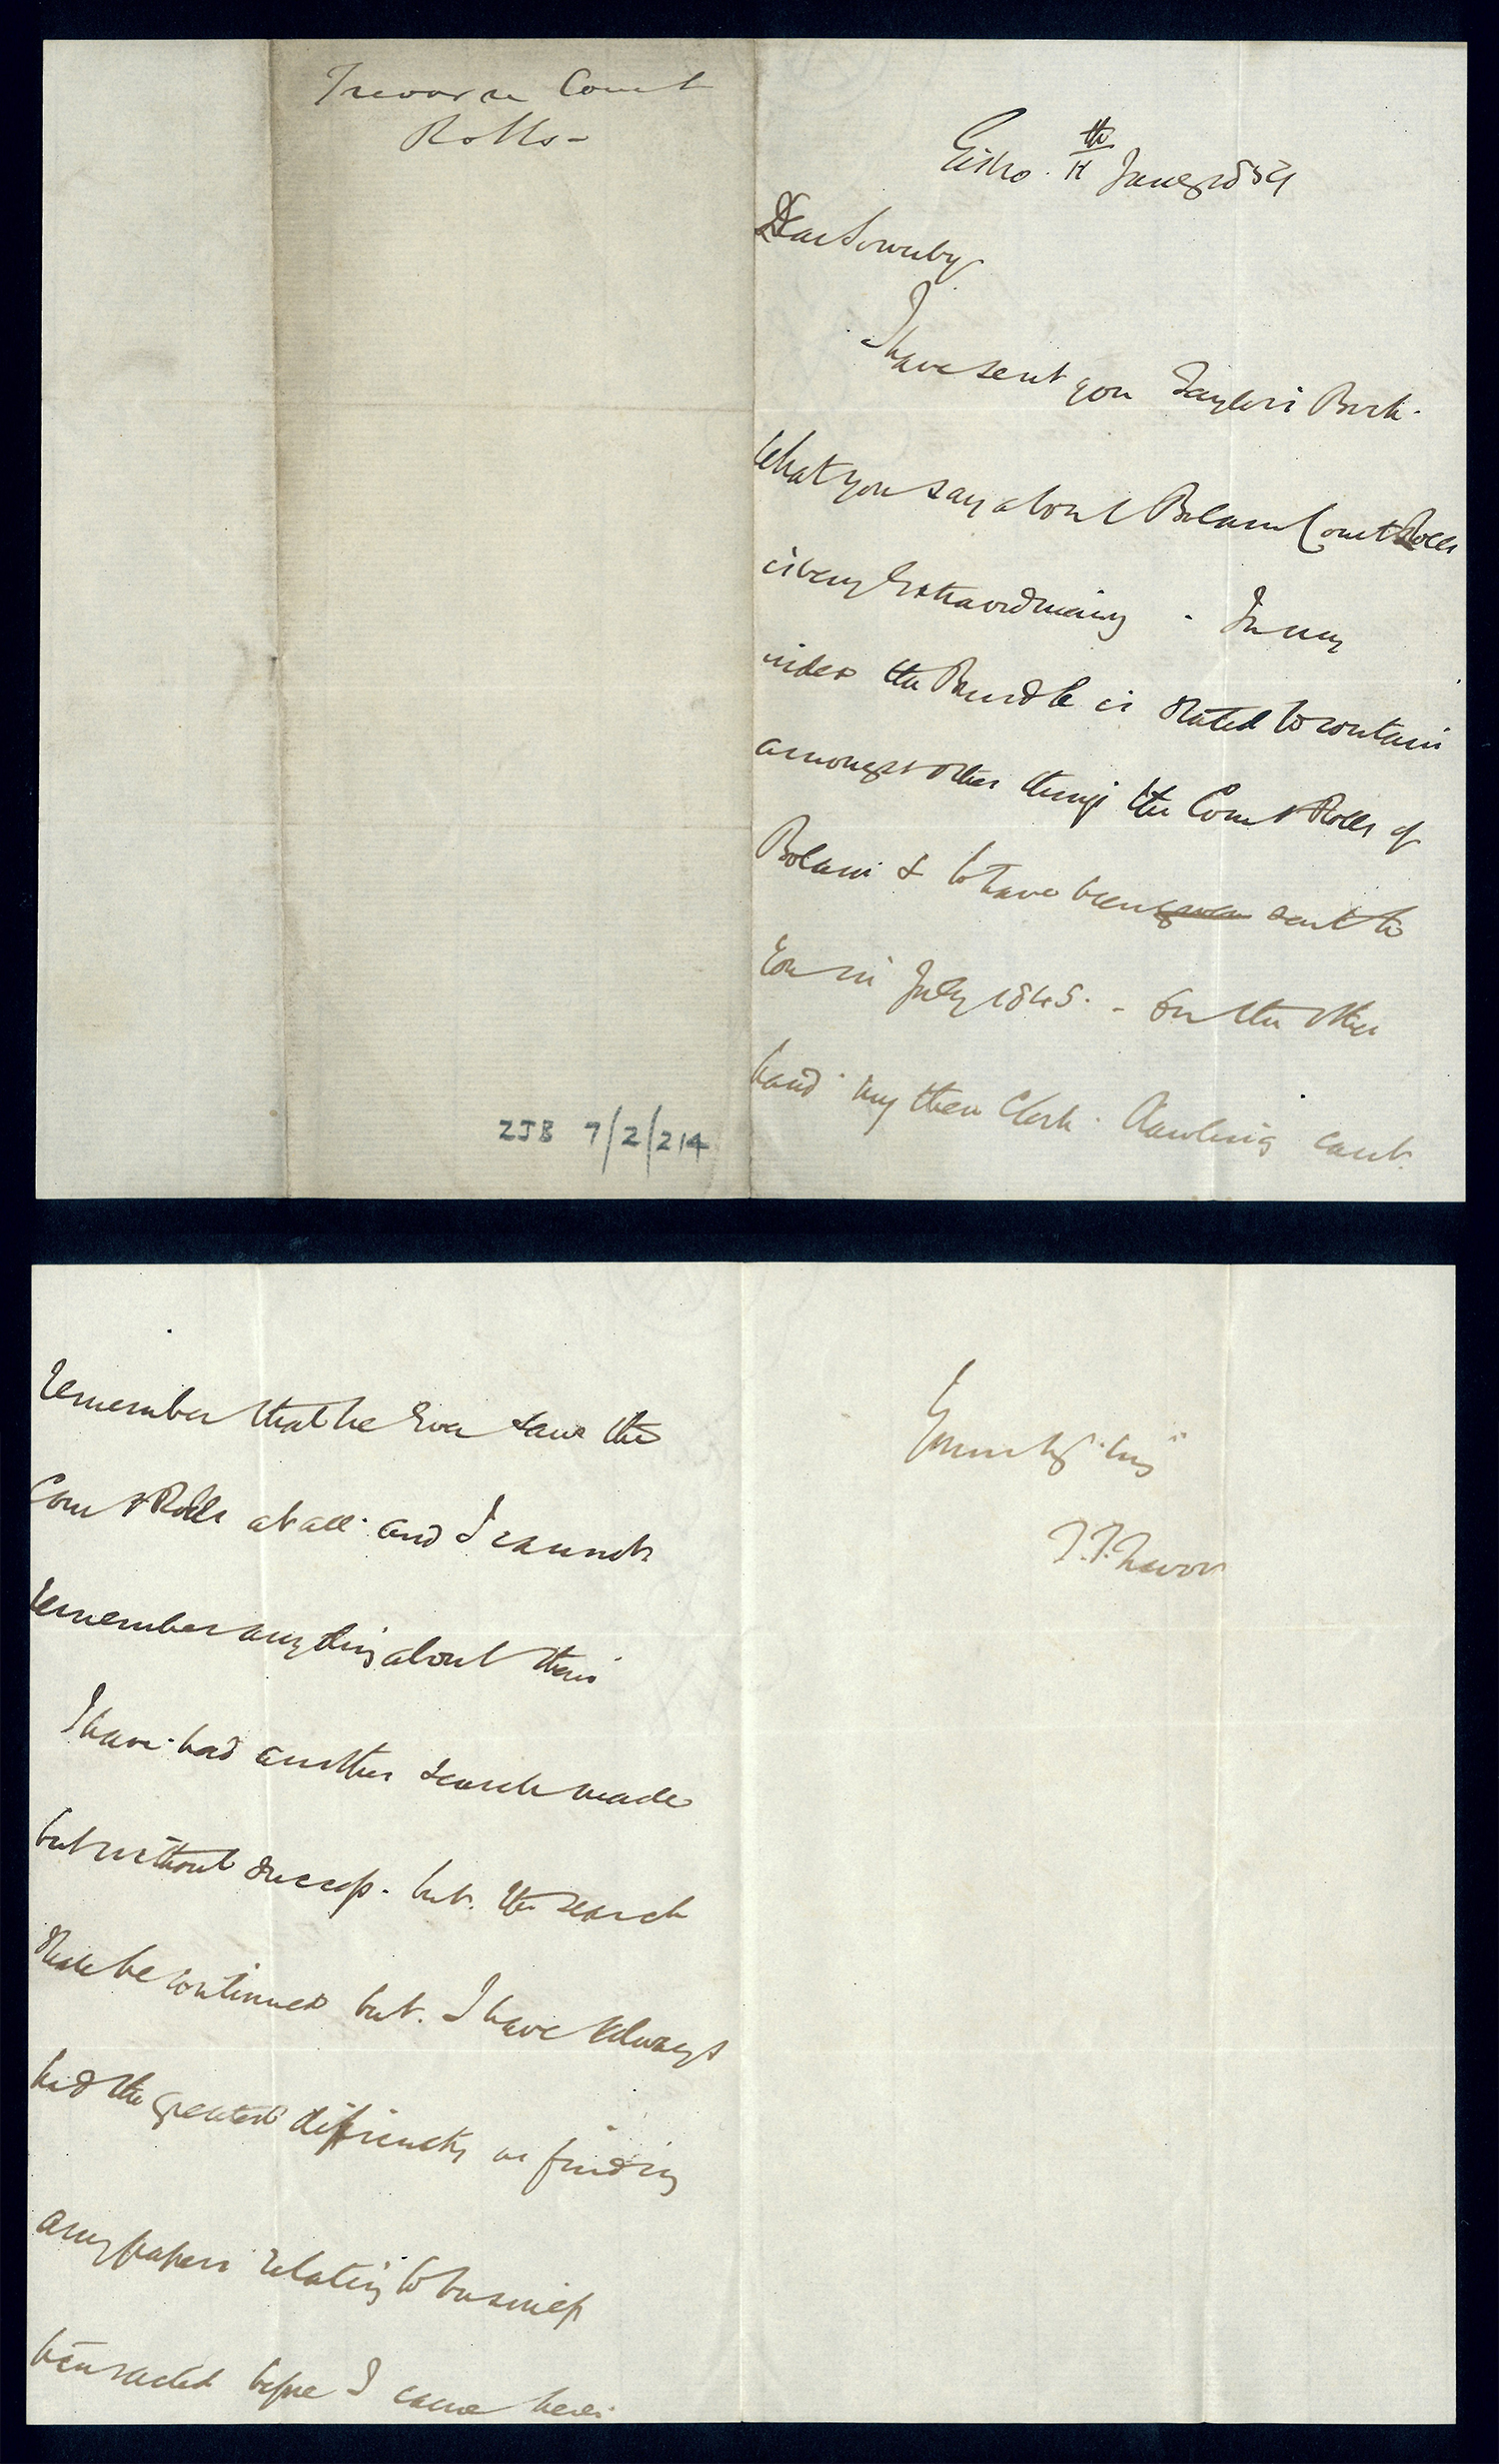 Trevor re Court
Rolls -
Gisbro. 11th Jany 1859
Dear Sowerby
I have sent you Taylor's Book.
What you say about Bolam Court Rolls
is very Extraordinary - In my
index the Bundle is stated to contain
amongst other things the Court Rolls of
Bolam & to have been given sent to
You in July 1845. - On the other
hand my then Clerk. Rawling cant.
remember that he Ever saw the
Court Rolls at all and I cannot
remember anything about them
I have had another search made
but without success. but. the search
shall be continued but. I have always
had the greatest difficulty in finding
any papers relating to business
transacted before I came here.
Yours truly
J.T. Trevor
ZJB 7/2/214